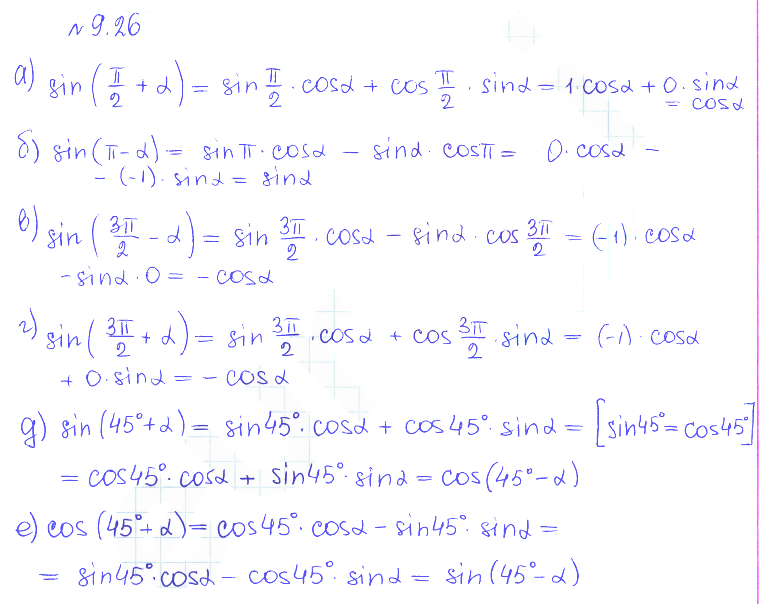 № 9.26
а) sin(π/2 + α) = sin π/2 · cosα + cos π/2 · sinα = 1·cosα + 0·sinα
= cosα
б) sin(π-α) = sinπ·cosα - sinα·cosπ = 0·cosα -
- (-1)·sinα = sinα
в) sin(3π/2 - α) = sin 3π/2 · cosα - sinα · cos 3π/2 = (-1)·cosα
-sinα·0 = -cosα
г) sin(3π/2 + α) = sin 3π/2 · cosα + cos 3π/2 · sinα = (-1)·cosα
+ 0·sinα = - cosα
д) sin(45°+α) = sin45°·cosα + cos45°·sinα = [sin45°=cos45°]
= cos45°·cosα + sin45°·sinα = cos(45°-α)
е) cos(45°+α) = cos45°·cosα - sin45°·sinα =
= sin45°·cosα - cos45°·sinα = sin(45°-α)